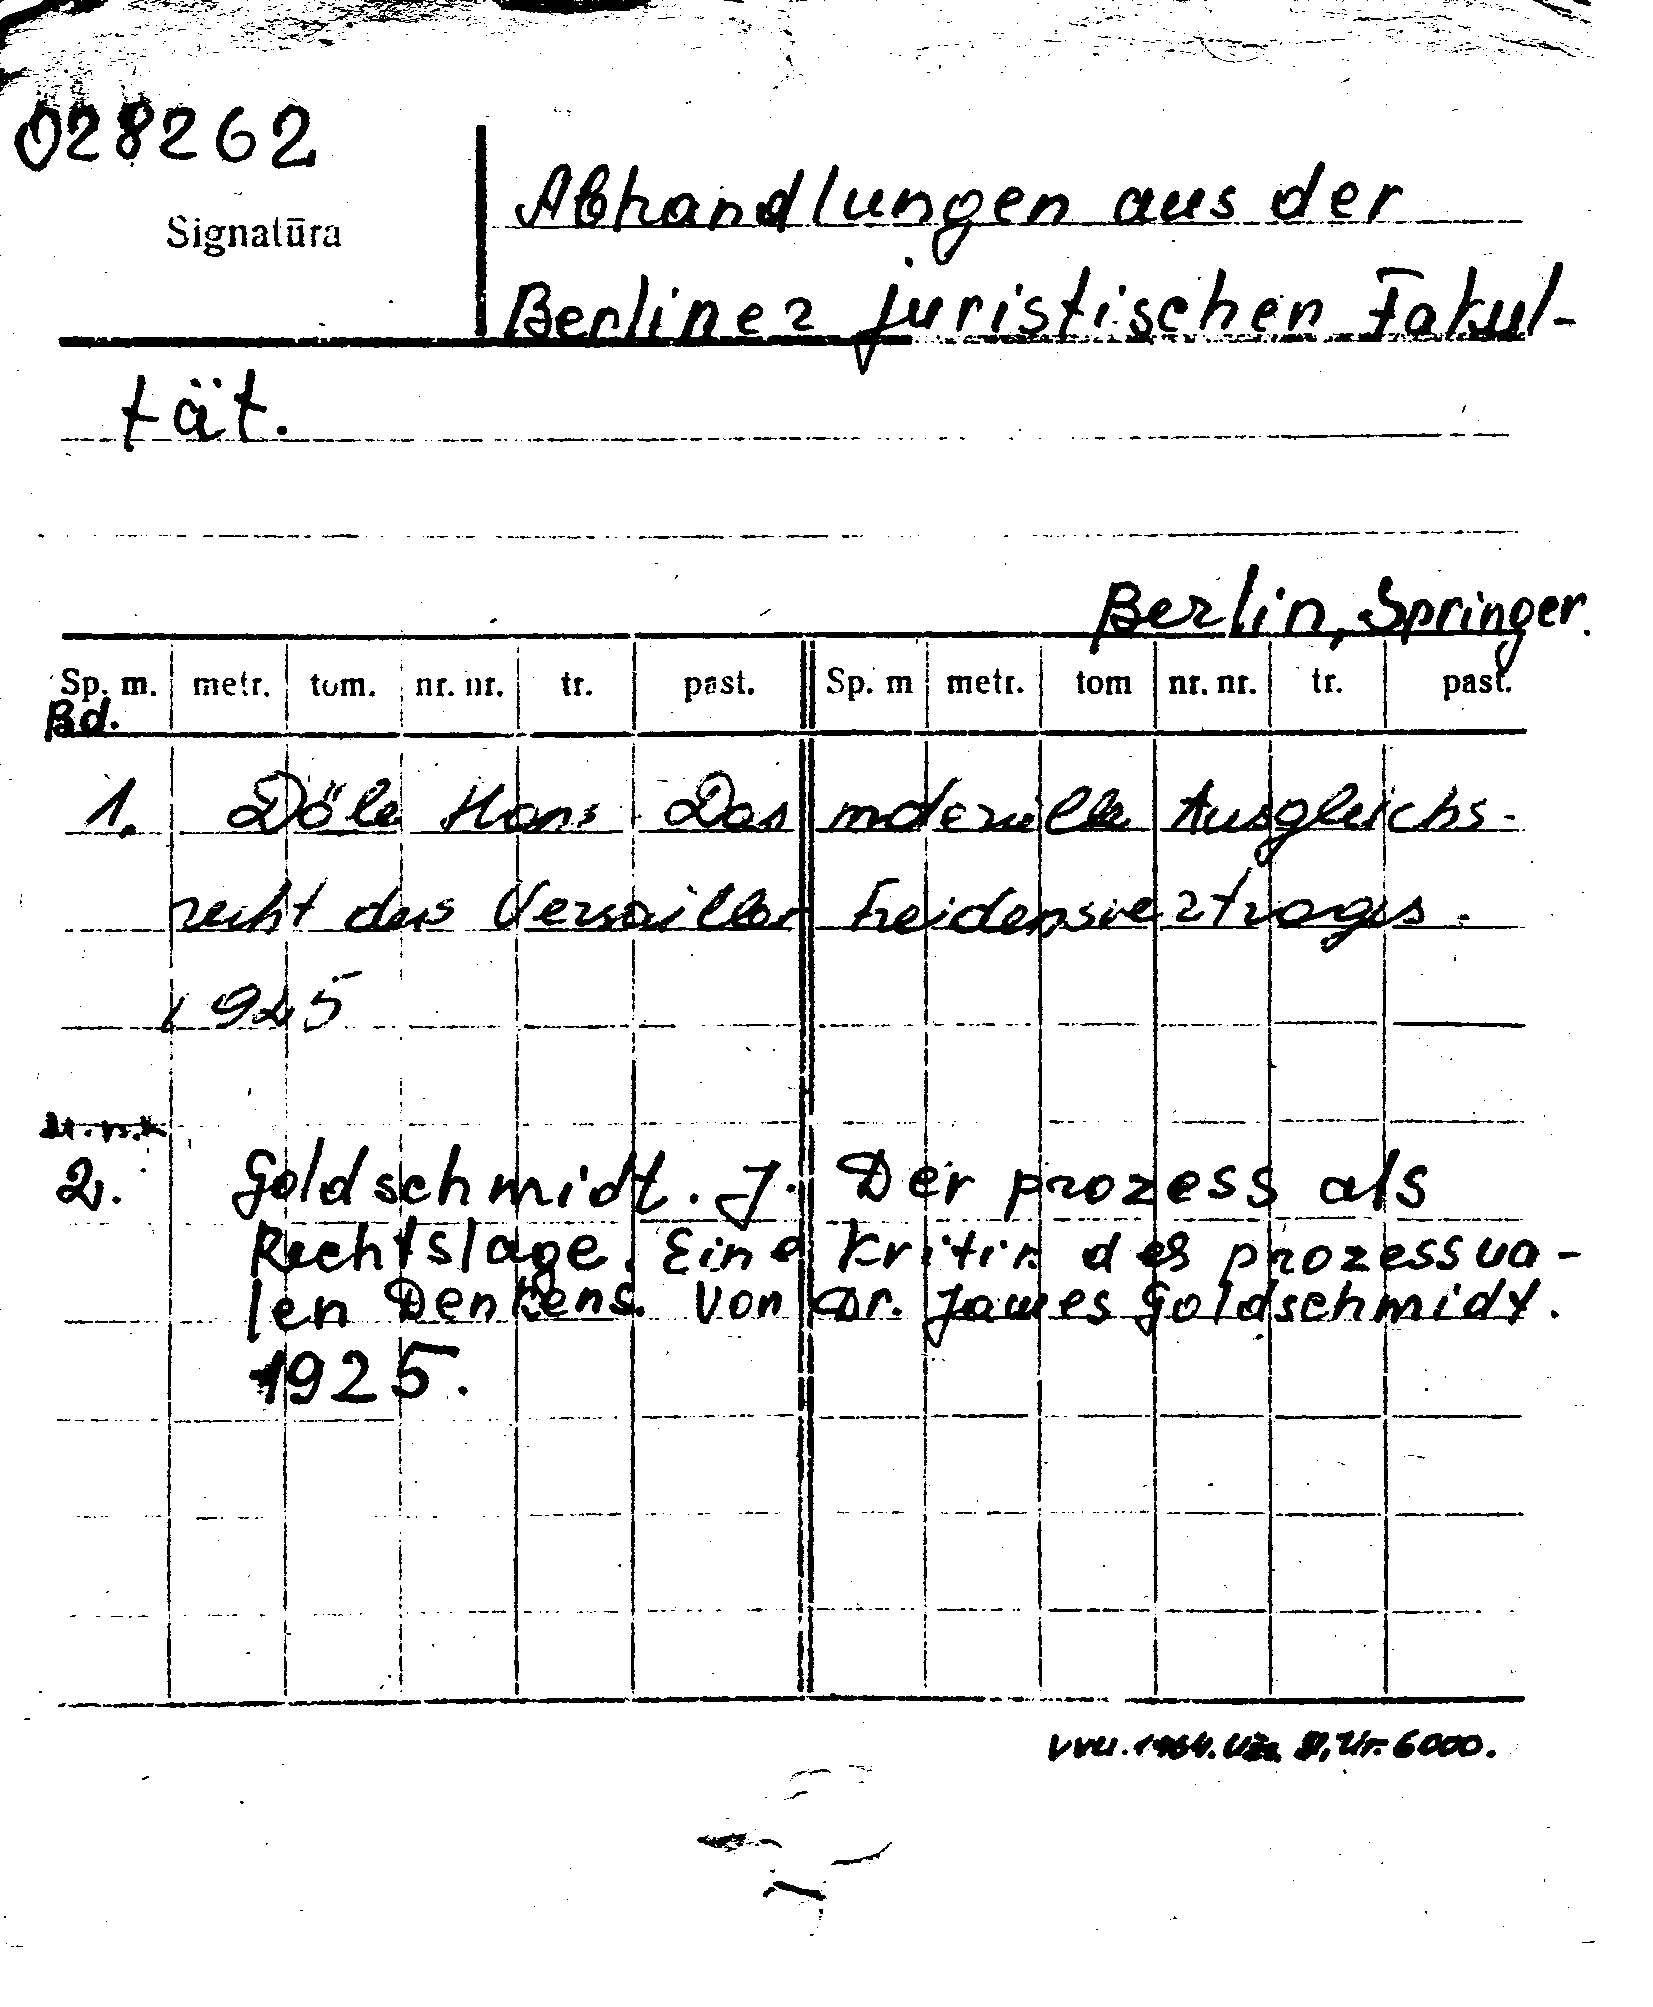 028262
Signatūra
Abhandlungen aus der
Berliner juristischen Fakul-
tät.
Berlin, Springer.
Sp. m. metr. tom. nr. nr. tr. past. Sp. m metr. tom nr. nr. tr. past.
Bd.
1. Döle Hans Das materielle Ausgleichs-
recht des Versailler Freidensvertrages.
1925
2. Goldschmidt. J. Der prozess als
Rechtslage. Eine Kritik des prozessua-
len Denkens. Von Dr. James Goldschmidt.
1925.
VVU. 1964. Užs. Nr. 6000.